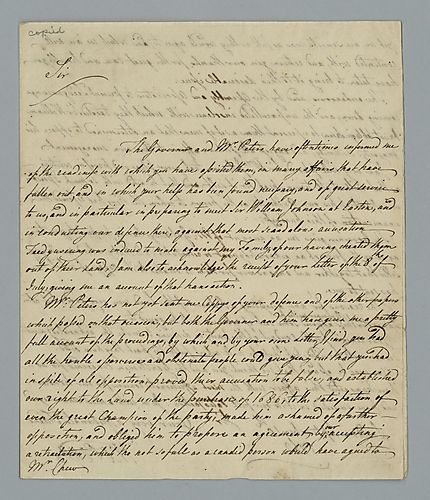 copied
Sir
The Governor and Mr. Peters have oftentimes informed me
of the readiness with which you have assisted them, in many affairs that have
fallen out, and in which your help has been found necessary, and of great service
to us, and in particular in preparing to meet Sir William Johnson at Easton, and
in conducting our defence there, against that most scandalous accusation
Teedyuscung was induced to make against my Family, of our having cheated them
out of their Lands. I am also to acknowledge the receipt of your letter of the
July, giving me an account of that transaction.
Mr. Peters has not yet sent me Copys of your defence and of the other papers
which passed on that occasion, but both the Governor and him have given me a pretty
full account of the proceedings, by which and by your own letter, I find, you had
all the trouble perverse and obstinate people could give you, but that you had
in spite of all opposition, proved their accusation to be false, and established
our right to the Land under the purchase of 1686, to the satisfaction of
even the great Champion of the party, made him ashamed of a farther
opposition, and obliged him to propose an agreement, by accepting
a retractation, which tho not so full as a candid person would have agreed to
Mr. Chew